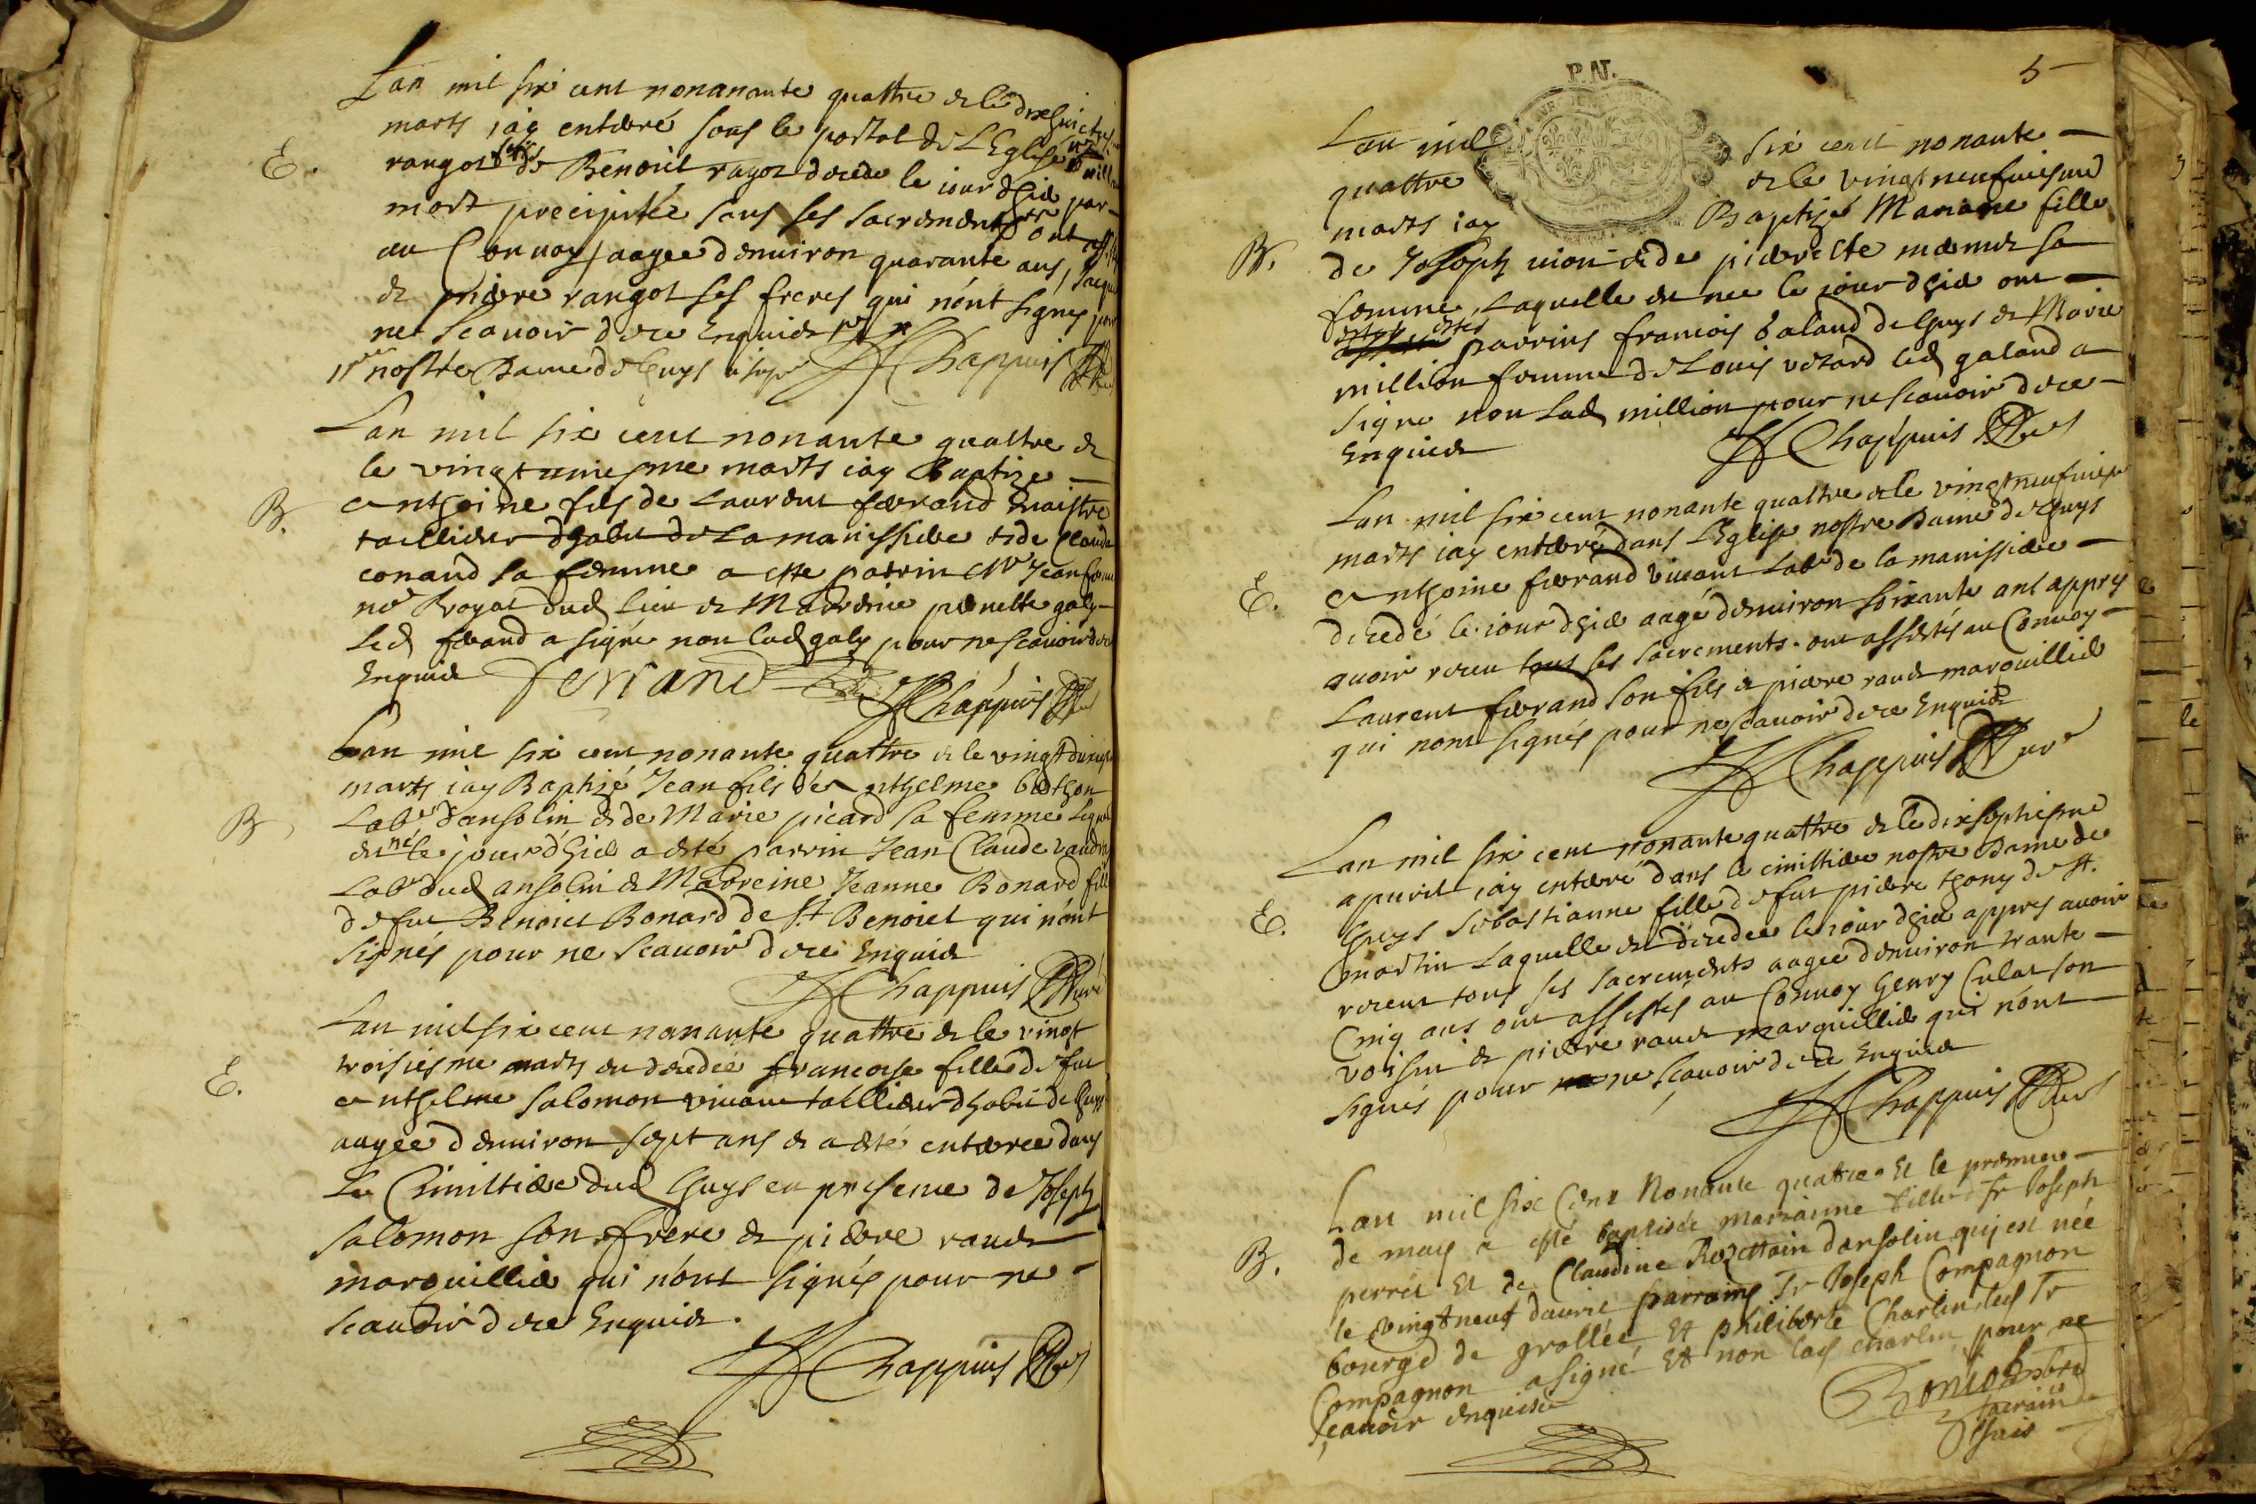 Lan mil six cent nonanante quattre & le dixhuict
marts jay enterré sous le portal de LEglise
E.
rangot de Benoict ragot decede le iour dhier par
mort precipitée sans ses sacrements ont
au Convoy aagee denviron quarante ans, Jacque
& pierre rangot ses freres qui n'ont signes pour
ne scavoir de ce Enquis
nostre Dame de Chuys Chappuis
Lan mil six cent nonante quattre &
le vingtuniesme marts iay Baptize
B.
Anthoine fils de Laurent ferrand maistre
taillieur dhabit de La manissiere & de Claude
conand sa femme a este parrin Mr Jean
nore Royal dud lieu & Marreine pernette galy
Led ferrand a signé non lad galy pour ne scavoir de ce
Enquis ferrand Chappuis Curé
Lan mil six cent nonante quattre & le vingtdeuxies
marts iay Baptizé Jean fils de Anthelme berthon
B
Labr dansolin & de Marie picard sa femme Lequel
est né le jour dhier a esté parrin Jean Claude
Labr dud ansolin & Marreine Jeanne Bonard fille
de fut Benoict Bonard de St Benoict qui n'ont
signés pour ne scavoir de ce Enquis
Chappuis Curé
Lan mil six cent nonante quattre & le vingt
troisiesme marts est decedée francoise fille de fut
E.
Anthelme salomon vivant taillieur dhabit de Chuys
aagee denviron sept ans & a esté enterree dans
Le Cimittiere dud Chuys en presence de Joseph
salomon son frere & pierre raude
marguillier qui n'ont signés pour ne
scavoir de ce Enquis.
Chappuis Curé
5
P.N.
Lan mil six cent nonante
quattre & le vingtneufviesme
marts iay Baptizé Mariane fille
B.
de Joseph & de pierrette sa
femme, Laquelle est nee le iour dhier ont
estés parrins francois galand de Chuys & Marie
million femme de Louis led galand a
signe non Lad million pour ne scavoir de ce
Enquise
Chappuis Curé
Lan mil six cent nonante quattre & le vingtneufviesme
marts iay enterré dans LEglise nostre Dame de Chuys
E.
Anthoine ferrand vivant Labr de la manissiere
decedé le iour dhier aagé denviron soixante ans appres
avoir receu tous ses sacrements. ont assistés au Convoy
Laurent ferrand son fils & pierre raude marguillier
qui n'ont signés pour ne scavoir de ce Enquis
Chappuis Curé
Lan mil six cent nonante quattre & le dixseptiesme
apuril iay enterré dans le cimittiere nostre Dame de
E.
Chuys sebastianne fille de fut pierre thony de St.
martin Laquelle est decedee le iour dhier appres avoir
receut tous ses sacrements aagee denviron trante
Cinq ans ont assistés au Convoy henry Culat son
voisin & pierre raude marguillier qui n'ont
signés pour ne scavoir de ce Enquis
Chappuis Curé
Lan mil six Cent Nonante quatre Et le premier
B.
de may a esté baptisée marianne fille a Sr Joseph
perret Et de Claudine dansolin qui est née
le vingtneuf davril parrains Sr Joseph Compagnon
bourge de grollée Et philiberte Charlin led Sr
Compagnon a signé Et non lad charlin pour ne
scavoir enquise